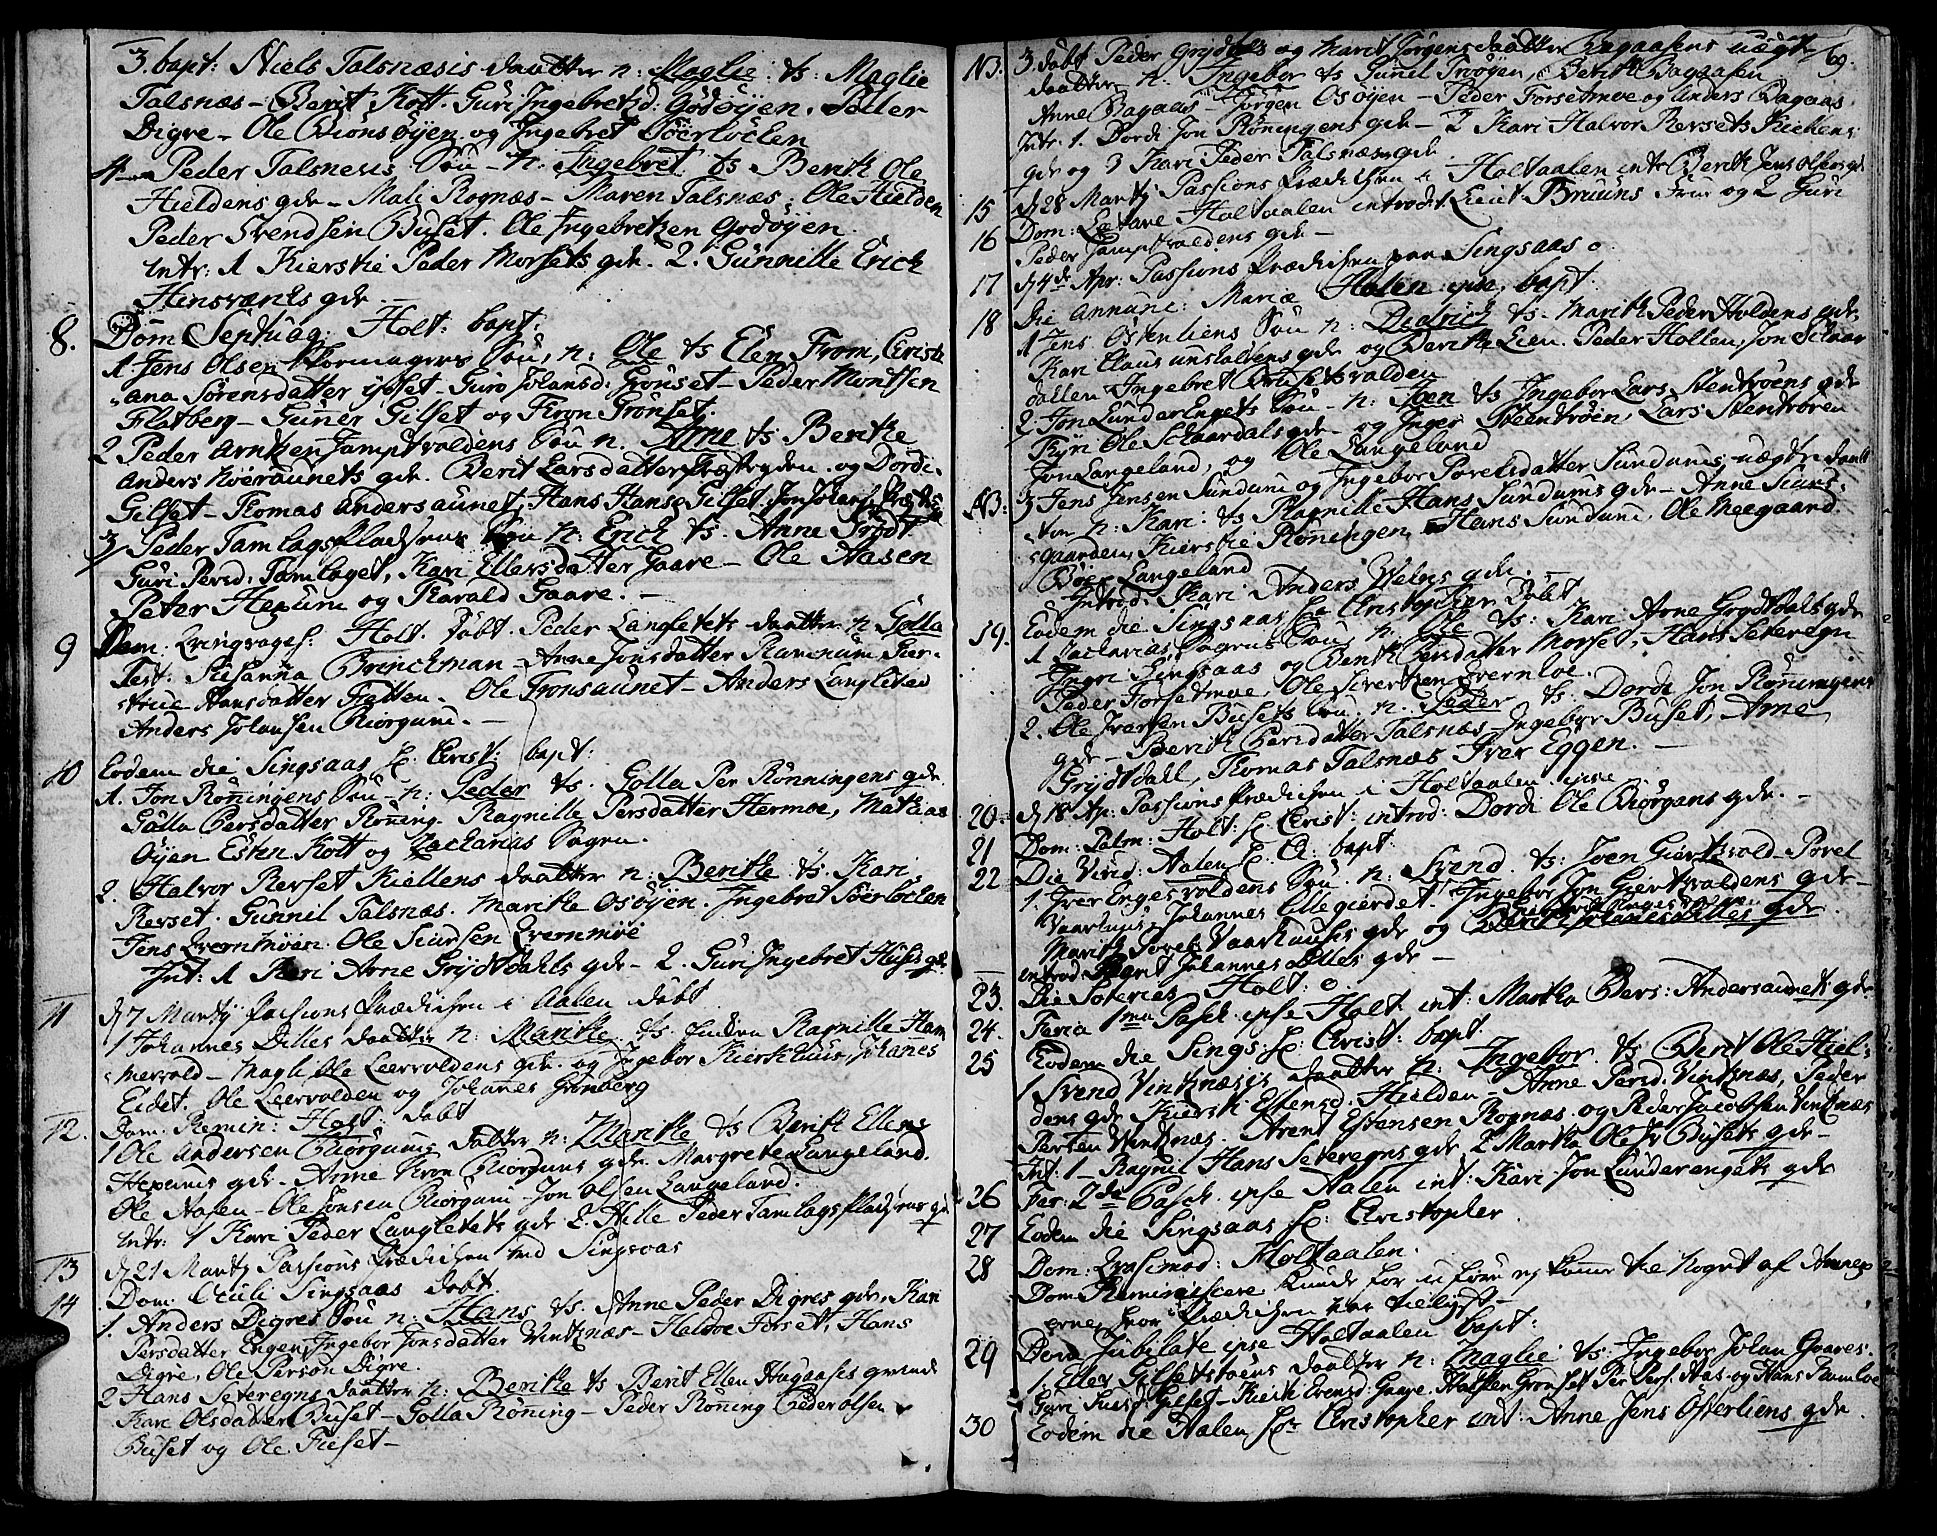 3. bapt: Niels Talsnæsis daatter n: Maglie. ts: Maglie
Talsnæs - Berit Kott. Guri Ingebretsd: Godøyen. Peder
Digre - Ole Biónsöyen og Ingebret Söerlöclen
4 Peder Talsnesis Søn - n: Ingebret. ts Berith Ole
Hieldens gde - Mali Rognæs - Maren Talsnæs; Ole Hielden
Peder Svendsen Buset. Ole Ingebretsen Godøyen.
intr: 1 Kierstie Peder Morsets gde. 2. Gunnille Erick
Hensvænts gde -
8. Dom Septuag: Holt: bapt:
1 Jens Olsen Skomagers Søn, n: Ole ts Elen From, Christi
ana Sørensdatter Gilset - Guro Johansd: Grönset - Peder Montsen
Flatberg - Gunner Gilset og Tron Grönset.
2 Peder Arntsen Jamptvoldens Søn n. Arne ts Berithe
Anders Kiöeraunets gde. Berit Larsdatter Præstøyden. og Dordi
Gilset - Thomas Andersaunet, Hans Hans: Gilset. Jon Johans:
3 Peder Tamlagspladsens Søn n. Erich ts. Anne Grödt
Guri Persd: Tamlaget, Kari Ellersdatter Gaare - Ole Aasen
Peter Hexum og Harald Gaare. -
9 Dom: Qvinqvages: Holt. Döbt. Peder Langletets daatter n Golla
Test: Susanna Brinckman - Anne Jonsdatter Ramlum, Kier-
stie Hansdatter Fatten. Ole Tronsaunet - Anders Langletet
Anders Johansen Biörgum. -
10 Eodem die Singsaas hr: Christ: bapt:
1. Jon Röningens Søn - n: Peder ts. Golla Per Rönningens gde
Golla Persdatter Röning. Ragnille Persdatter Hermoe, Mathias
Öyen Esten Kott og Zacharias Sagen.
2. Halvor Revset Kiellens daatter n: Berithe ts. Kari
Revset. Gunnil Talsnæs. Marithe Osöyen. Ingebret Söerløclen
Jens Qvernmöen. Ole Siursen Qvernmöe
Int: 1 Kari Arne Grydtdahls gde - 2. Guri Ingebret Husis gde.
11 d 7 Marty Passions Prædichen i Aalen döbt
1 Johannes Dilles daatter n: Marithe. ts. Ragnille Ham
mervold - Magli Ole Leervoldens gde. og Ingebor Kierkhuus, Johannes
Eidet. Ole Leervolden og Johannes Grönberg
12. Dom. Remin: Holt: döbt
1 Ole Andersen Biörgums daatter n: Marithe ts Berith Ellens
Hexums gde - Anne Tron Biörgums gde. Margrete Langeland.
Ole Aalen - Ole Jonsen Biörgum - Jon Olsen Langeland.
intr: 1 Kari Peder Langletets gde 2 Hille Peder Tamlagspladsens gde
13 d 21 Marty Passions Prædichen ved Singsaas
14 Dom: Oculi Singsaas döbt
1. Anders Digres Søn n. Hans ts. Anne Peder Digres gde, Kari
Persdatter Engen, Ingebor Jonsdatter Vintznæs - Haldoe Forset, Hans
Digre, Ole Person Digre.
2 Hans Seteregns daatter n: Berithe ts Berit Ellen Hugaases
Kari Olsdatter Buset - Golla Röning - Peder Röning Peder Olsen
Buset og Ole Fieset -

69.
NB: 3. döbt Peder Grydtdals og Marit Jörgensdaatter Bagaasens uægte
daatter n. Ingebor ts Gunil Troöyen, Berith Bagaasen
Anne Bagaas Jörgen Osöyen - Peder Forsetmoe og Anders Bagaas.
Intr. 1. Dordi Jon Röningens gde - 2 Kari Halvor Revsets Kiellens
gde og 3 Kari Peder Talsnæs gde.
15 d 28 Marty Passions Prædichen i Holtaalen intr: Berith Jens Olsens gde
16 Dom: Lætare Holtaalen introd: 1 Lieut Bruuns Frue og 2 Guri
Peder Jamptvoldens gde -
17 d 4de Apr: Passions Prædichen paa Singsaas o
18 Die Annunc: Mariæ Haalen ipse bapt.
1 Jens Österliens Søn n: Diedrich ts. Marith Peder Holdens gde
Kari Claus gde og Berith Lien. Peder Hollen, Jon
dallen Ingebret Brusetsvolden
2. Jon Lunder Engets Søn - n: Joen ts Ingebor Lars Stentröens gde
Kyri Ole Schaardals gde og Inger Steentröen, Lars Stentröen
Jon Langeland, og Ole Langeland
NB: 3 Jens Jensen Sundum og Ingebor Povelsdatter Sundums uægte daat
ter n: Kari ts Ragnille Hans Sundums gde - Anne Siurs-
gaarden, Kierstie Röningen, Hans Sundum, Ole Meegaard
Langeland
Introd: Kari Anders Welvs gde. -
19. Eodem die Singsaas hr Christopher döbt
1 Zacharias Sagens Søn, n. Ole ts: Kari Arne Grydtdals gde
Ingri Singsaas og Berith Persdatter Morset, Hans Seteregn
Peder Forsetmoe, Ole Sivertsen Qvernloe.
2. Ole Iversen Busets Søn. n. Peder ts. Dordi Jon Röningens
gde - Berith Persdatter Talsnæs Ingebor Buset, Arne
Grydtdall, Thomas Talsnæs Iver Eggen. -
20. d 18 Ap: Passions Prædichen i Holtaalen ipse
21 Dom: Palm: Holt: hr Christ: introd: Dordi Ole Biörgans gde. -
22 Die Virid: Aalen hr: C: bapt:
1. Iver Engesvoldens Søn n. Svend ts: Joen Giertvold Povel
Vaarhus, Johannes Ellegierdet. Ingebor Jon Giertvoldens gde -
Marith Povel Vaarhuuses gde og
introd: Berit Johannes Dilles gde -
23. Die Soteries Holt: o.
24. Feria 1ma Pasch. ipse Holt. int: Martha Pers: Andersaunets gde
25 Eodem die Sings: hr: Christ: bapt.
1 Svend Vintznæsis daatter n: Ingebor. ts Berit Ole Hiel-
dens gde Kiersti Estensd. Hielden - Anne Persd. Vintznæs, Peder
Persen Vintznæs. Arent Estensen Rognæs og Peder Jacobsen Vintznæs
Int: 1 - Ragnil Hans Seteregns gde, 2 Martha Ole Busets gde -
26 Fer: 2da Pasch. ipse Aalen int: Kari Jon Lunderengets gde
27 Eodem die Singsaas hr: Christopher.
28 Dom: Qvasimod: Holtaalen.
Dom Reminiscere Kunde for u-före ej komme til noget af Annex
erne, hvor Prædichen var tillyst -
29 Dom Jubilate ipse Holtaalen bapt:
1. Eller Gilsetstöens daatter n: Maglie ts. Ingebor Johan Gaares
Guri Siursd: Gilset - Kierst: Evensd: Gaare. Halsten Grönset Per Pers: Aas - og Hans Ramloe
30 Eodem die Aalen hr Christopher int: Anne Jens Österliens gde